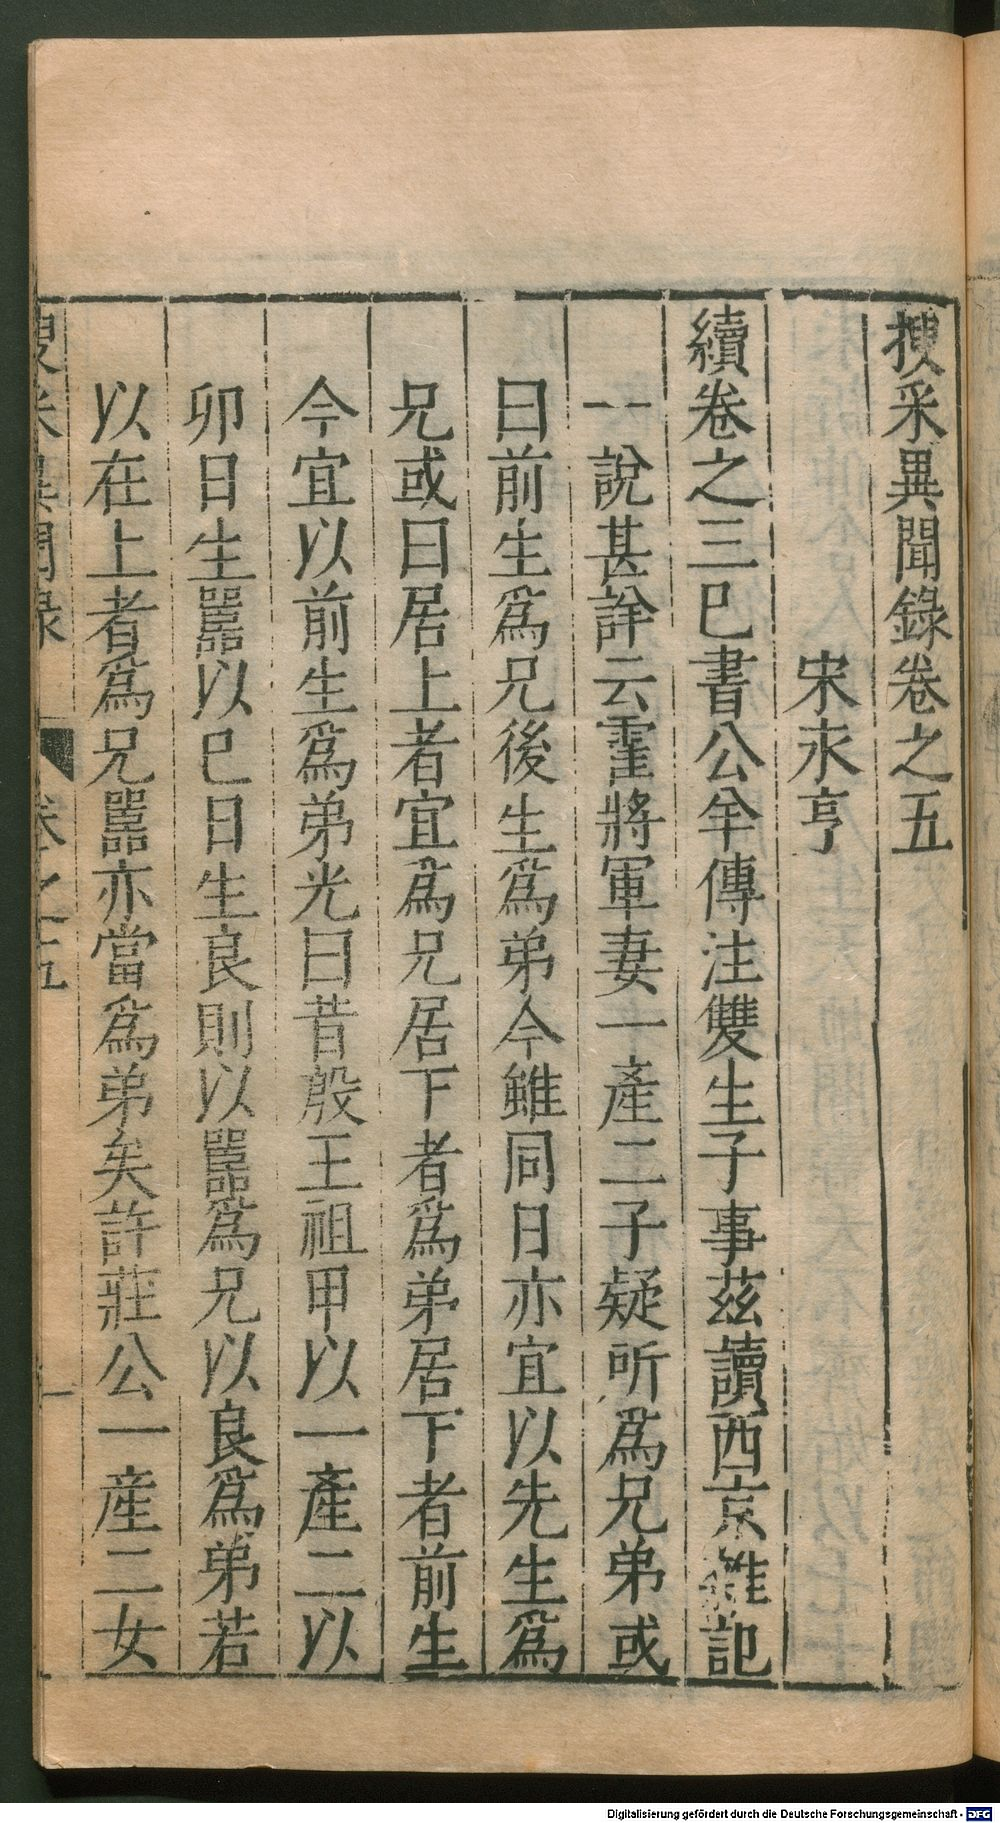 搜采異聞錄卷之五
宋永亨
續卷之三已書公羊傳注雙生子事茲讀西京雜記
一說甚詳云霍將軍妻一產二子疑所爲兄弟或
曰前生爲兄後生爲弟今雖同日亦宜以先生爲
兄或曰居上者宜爲兄居下者爲弟居下者前生
今宜以前生爲弟光曰昔殷王祖甲以一產二以
卯日生嚚以巳日生良則以嚚爲兄以良爲弟若
以在上者爲兄嚚亦當爲弟矣許莊公一産二女
搜采異聞錄 卷之五 一
Digitalisierung gefördert durch die Deutsche Forschungsgemeinschaft - DFG